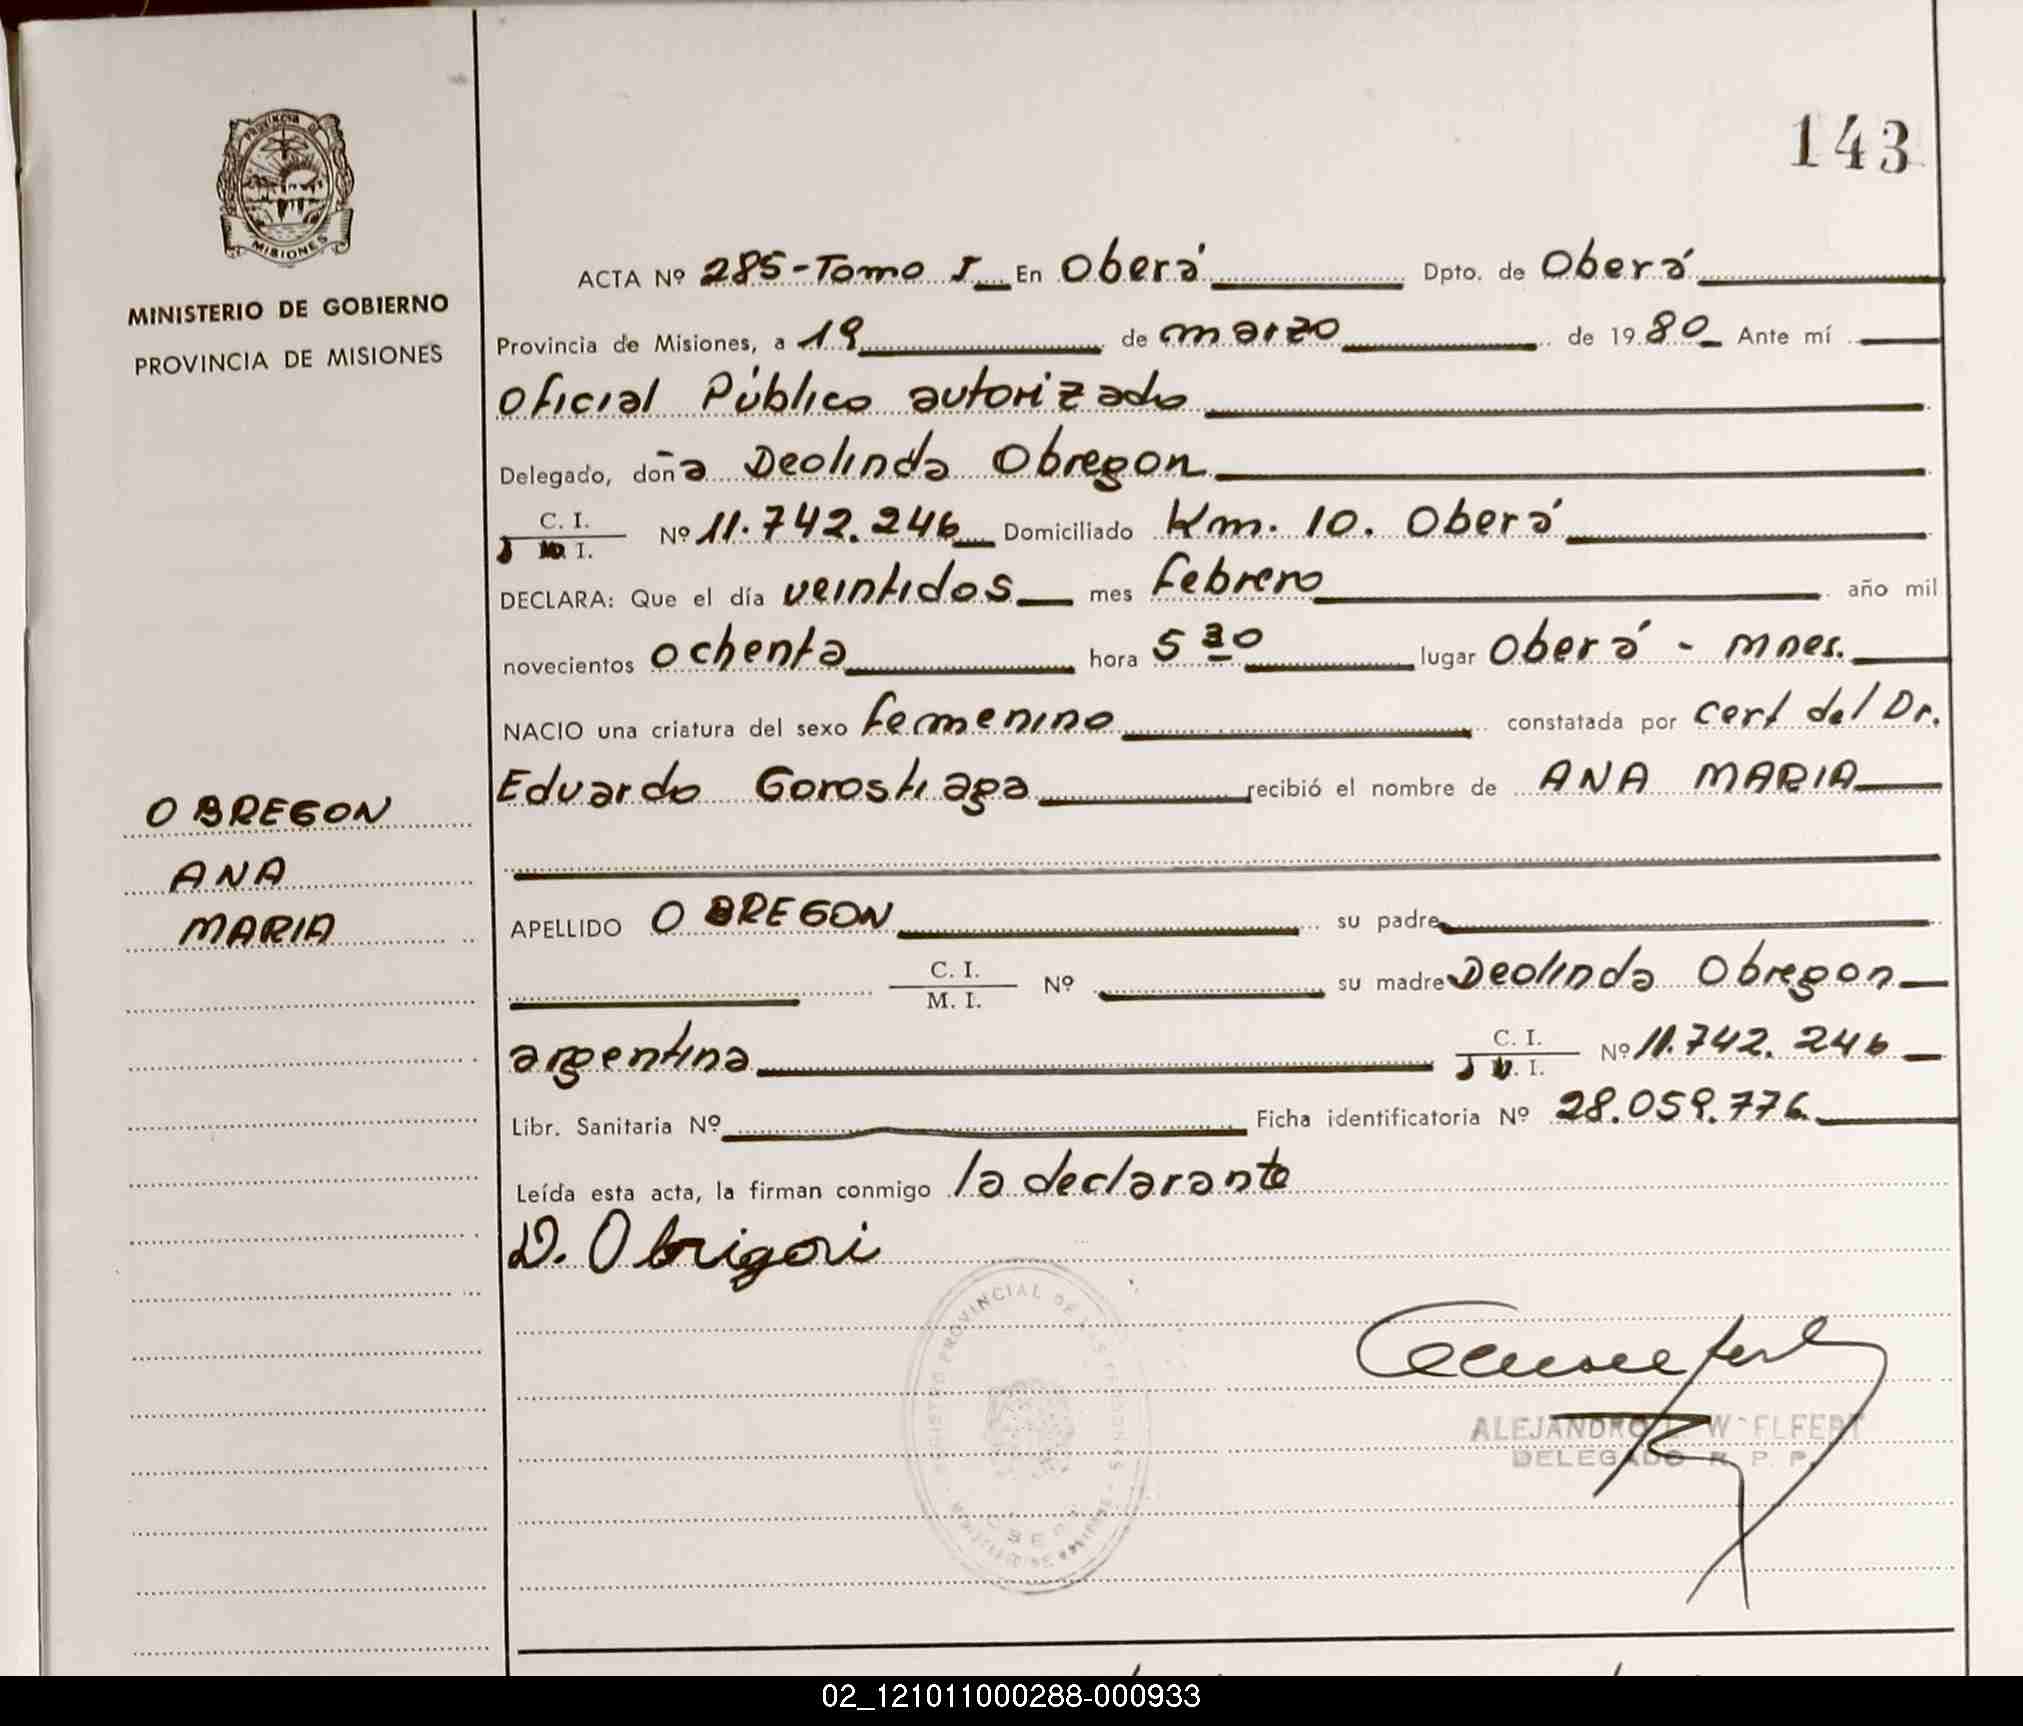 143
PROVINCIA DE
MISIONES
MINISTERIO DE GOBIERNO
PROVINCIA DE MISIONES
ACTA Nº 285-Tomo I En Oberá Dpto. de Oberá
Provincia de Misiones, a 19 de marzo de 1980 Ante mí
Oficial Público autorizado
Delegado, doña Deolinda Obregon
C. I.
Nº 11.742.246 Domiciliado Km. 10. Oberá
D.N.I.
DECLARA: Que el día veintidos mes febrero año mil
novecientos ochenta hora 5 30 lugar Oberá - Mnes.
NACIO una criatura del sexo femenino constatada por cert del Dr.
Eduardo Gorostiaga recibió el nombre de ANA MARIA
OBREGON
ANA
MARIA
APELLIDO OBREGON su padre
C. I.
M. I. Nº su madre Deolinda Obregon
argentina C. I. Nº 11.742.246
D.N.I.
Libr. Sanitaria Nº Ficha identificatoria Nº 28.059.776
Leída esta acta, la firman conmigo la declarante
D. Obrigori
REGISTRO PROVINCIAL DE LAS PERSONAS
ALEJANDRO
DELEGADO R. P. P.
02_121011000288-000933